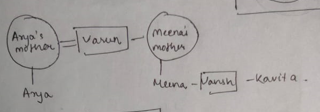 Anya's mother = Varun - Meena's mother
Anya
Meena - Vansh - Kavita.